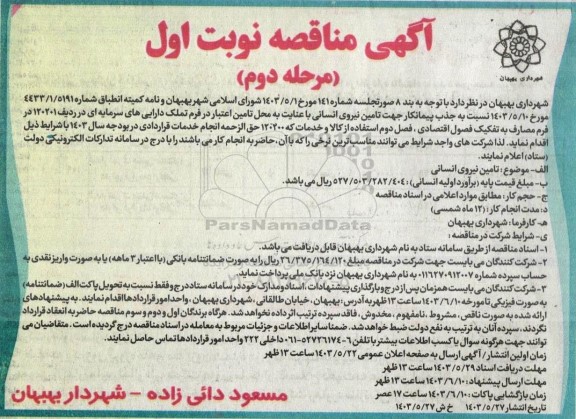 آگهی مناقصه نوبت اول
(مرحله دوم)
شهرداری بهبهان
شهرداری بهبهان در نظر دارد با توجه به بند ۸ صورتجلسه شماره ۱۴۱ مورخ ۱۴۰۳/۵/۱ شورای اسلامی شهر بهبهان و نامه کمیته انطباق شماره ۴۴۳۳/۱/۵۱۹۱
مورخ ۱۴۰۳/۵/۱۰ نسبت به جذب پیمانکار جهت تامین نیروی انسانی با عنایت به محل تامین اعتبار در فرم تملک دارایی های سرمایه ای در ردیف ۱۲۰۲۰۱ در
فرم مصارف به تفکیک فصول اقتصادی، فصل دوم استفاده از کالا و خدمات که ۱۲۰۲۰۰ حق الزحمه انجام خدمات قراردادی در بودجه سال ۱۴۰۳ با شرایط ذیل
اقدام نماید. لذا شرکت های واجد شرایط می توانند مناسب ترین نرخی را که با آن، حاضر به انجام کار می باشند را با درج در سامانه تدارکات الکترونیکی دولت
(ستاد) اعلام نمایند.
الف- موضوع: تامین نیروی انسانی
ب- مبلغ قیمت پایه (برآورد اولیه انسانی): ۵۲۷/۵۰۳/۲۸۲/۴۰۴ ریال می باشد.
ج- حجم کار: مطابق موارد اعلامی در اسناد مناقصه
د: مدت انجام کار: (۱۲ ماه شمسی)
هـ- کارفرما: شهرداری بهبهان
ی- شرایط شرکت در مناقصه:
۱- اسناد مناقصه از طریق سامانه ستاد به نام شهرداری بهبهان قابل دریافت می باشد.
۲- شرکت کنندگان می بایست جهت شرکت در مناقصه مبلغ ۲۶/۳۷۵/۱۶۴/۱۲۰ ریال را به صورت ضمانتنامه بانکی (با اعتبار ۳ ماهه) یا به صورت واریز نقدی به
حساب سپرده شماره ۰۱۱۶۲۷۰۹۱۲۰۰۷ به نام شهرداری بهبهان نزد بانک ملی پرداخت نماید.
۳- شرکت کنندگان می بایست همزمان پس از درج و بارگذاری پیشنهادات، اسناد و مدارک خود در سامانه ستاد درج و فقط نسبت به تحویل پاکت الف (ضمانتنامه)
به صورت فیزیکی تا مورخه ۱۴۰۳/۶/۱۰ ساعت ۱۳ ظهر به آدرس: بهبهان، خیابان طالقانی، شهرداری بهبهان، واحد امور قراردادها اقدام نمایند. به پیشنهادهای
ارائه شده به صورت ناقص، مشروط، نامفهوم، مخدوش، فاقد سپرده ترتیب اثر داده نخواهد شد. هرگاه برندگان اول و دوم و سوم مناقصه حاضر به انعقاد قرارداد
نگردند، سپرده آنان به ترتیب به نفع دولت ضبط خواهد شد. ضمنا سایر اطلاعات و جزئیات مربوط به معامله در اسناد مناقصه درج گردیده است. متقاضیان می
توانند جهت هرگونه سوال یا کسب اطلاعات بیشتر با تلفن ۶-۰۶۱۵۲۷۲۶۱۷۴ داخلی ۲۲۲ واحد امور قراردادها تماس حاصل نمایند.
زمان اولین انتشار / آگهی ارسال به صفحه اعلان عمومی ۱۴۰۳/۵/۲۲ ساعت ۱۳ ظهر
مهلت دریافت اسناد ۱۴۰۳/۵/۲۹ ساعت ۱۳ ظهر
مهلت ارسال پیشنهاد: ۱۴۰۳/۶/۱۰ ساعت ۱۳ ظهر
زمان بازگشایی پاکات: ۱۴۰۳/۶/۱۰ ساعت ۱۷ عصر
تاریخ انتشار ۱۴۰۳/۵/۲۷ خ ش ۱۴۰۳/۵/۲۷
مسعود دائی زاده - شهردار بهبهان
ParsNamadData